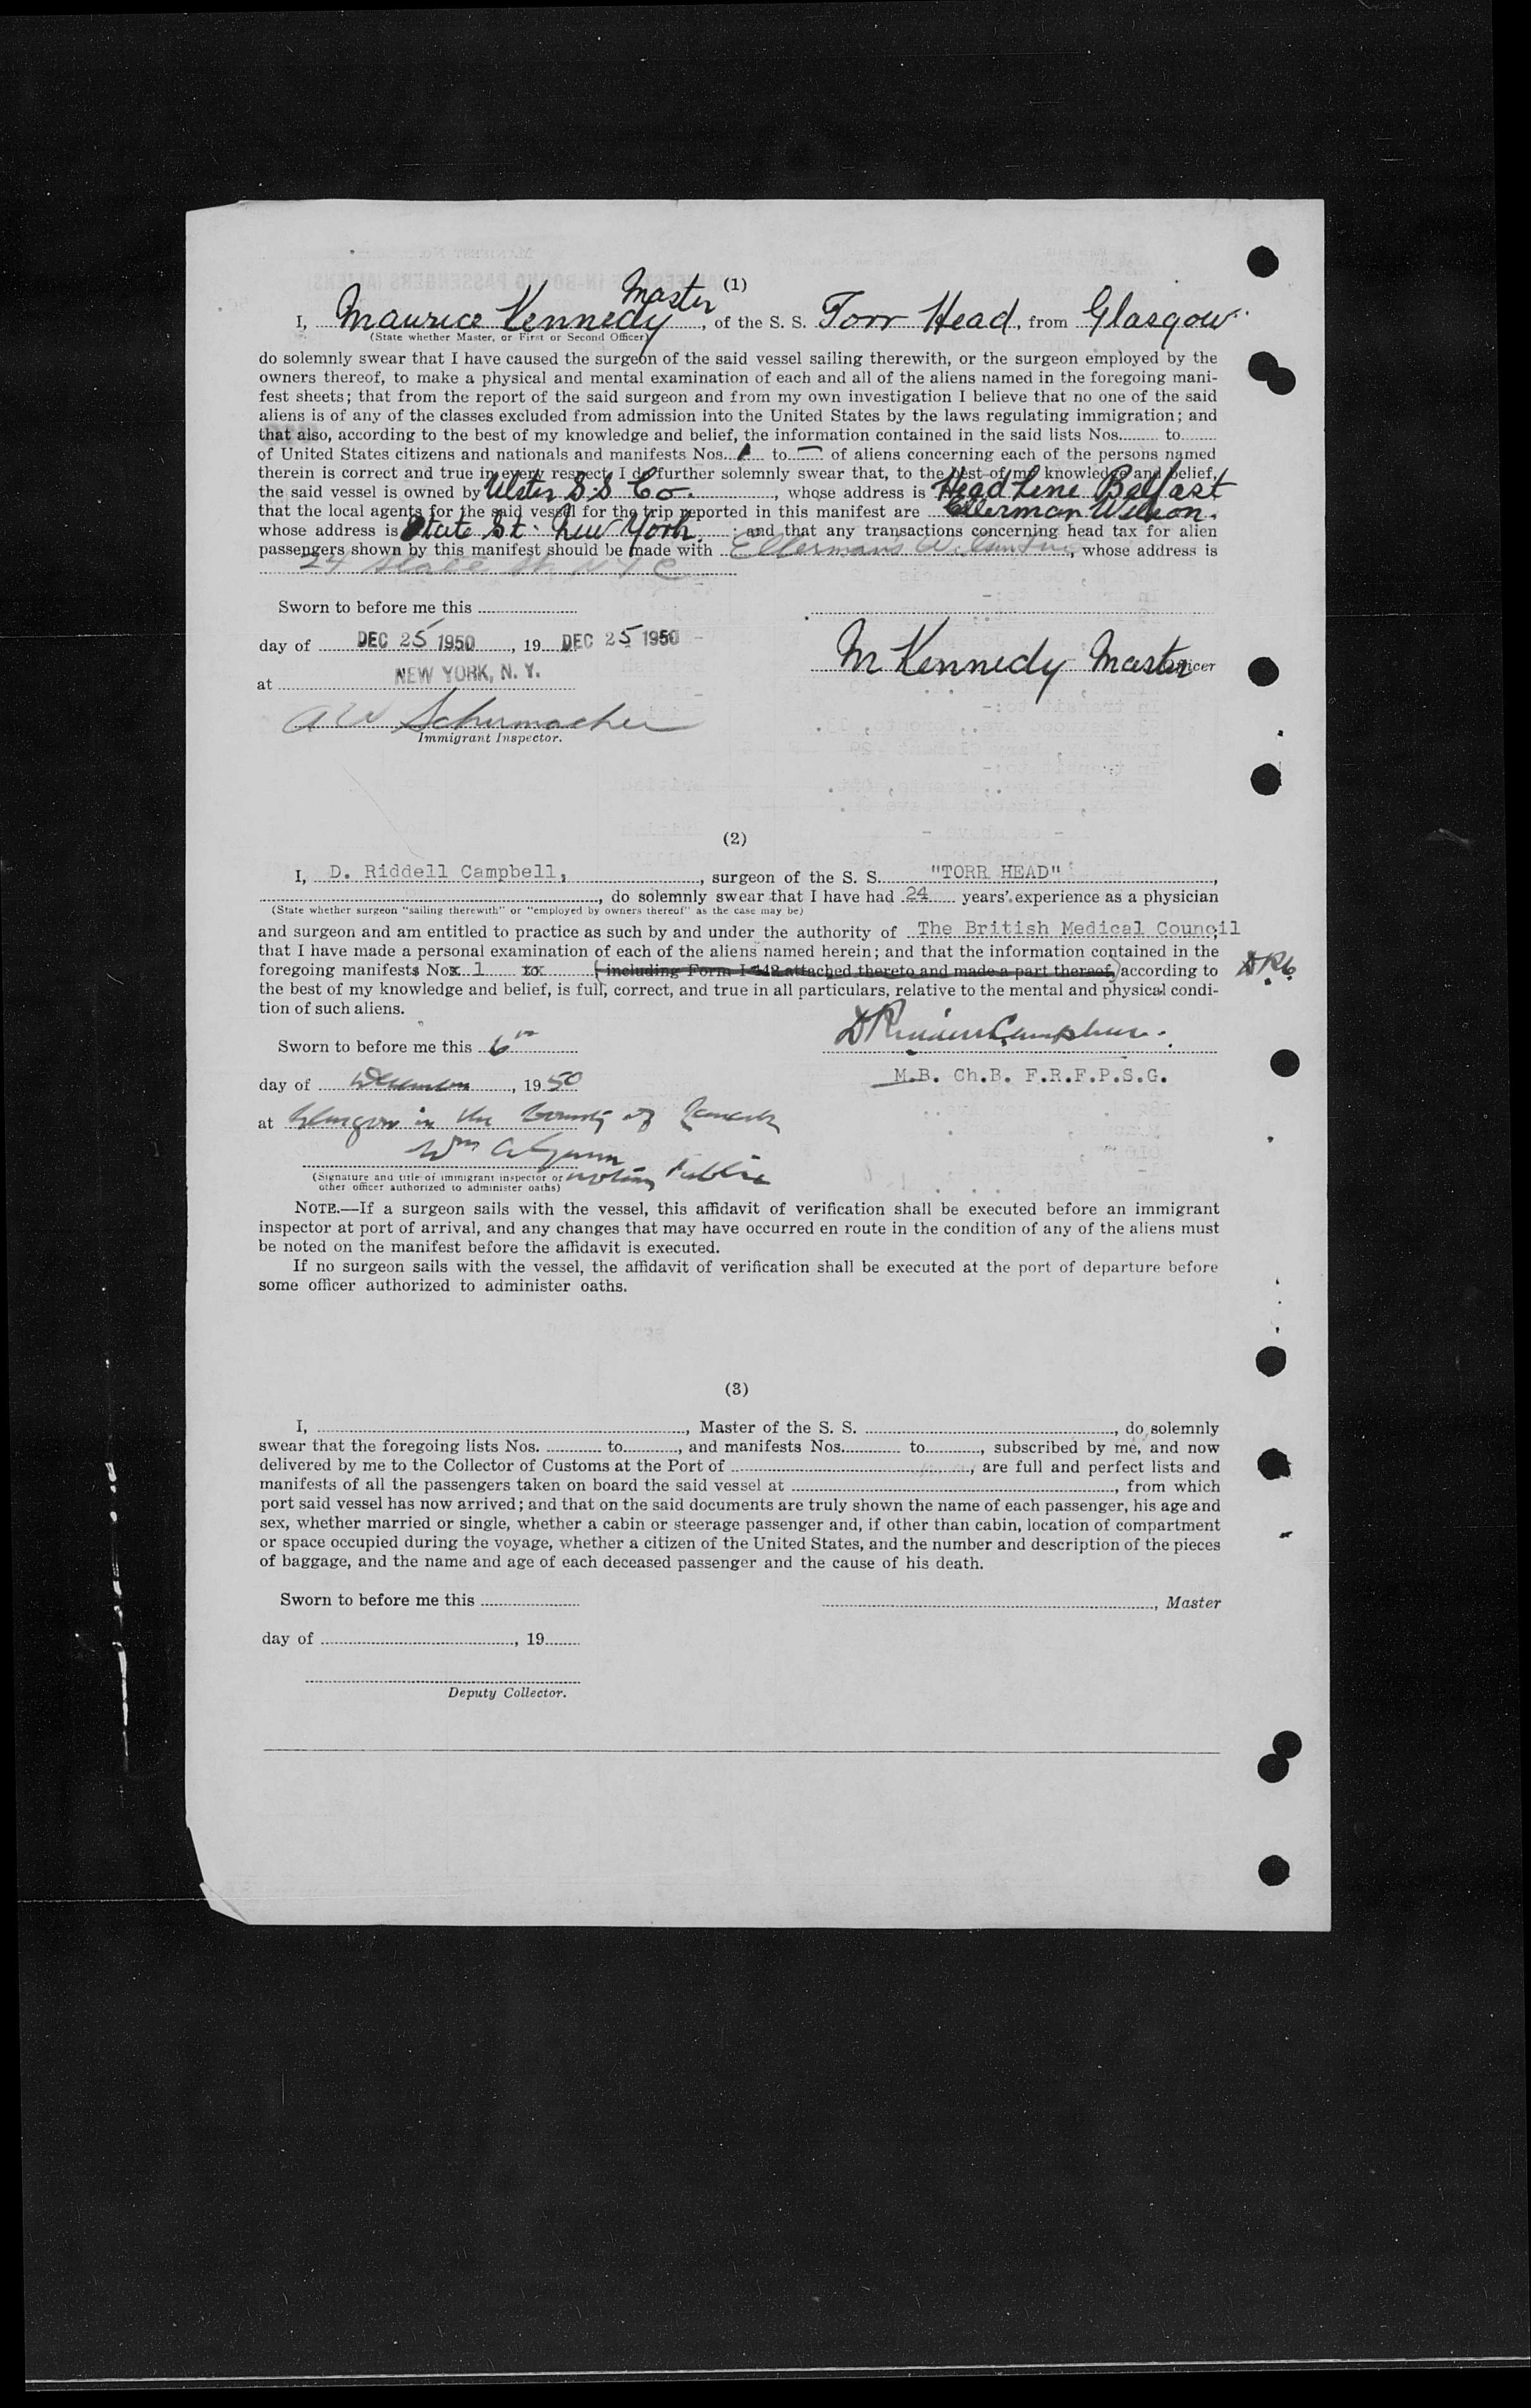 (1)
Master
I, Maurice Kennedy, of the S. S. Torr Head, from Glasgow
(State whether Master, or First or Second Officer)
do solemnly swear that I have caused the surgeon of the said vessel sailing therewith, or the surgeon employed by the
owners thereof, to make a physical and mental examination of each and all of the aliens named in the foregoing mani-
fest sheets; that from the report of the said surgeon and from my own investigation I believe that no one of the said
aliens is of any of the classes excluded from admission into the United States by the laws regulating immigration; and
that also, according to the best of my knowledge and belief, the information contained in the said lists Nos. to
of United States citizens and nationals and manifests Nos. 1 to — of aliens concerning each of the persons named
therein is correct and true in every respect. I do further solemnly swear that, to the best of my knowledge and belief,
the said vessel is owned by Ulster S.S Co., whose address is Head Line Belfast
that the local agents for the said vessel for the trip reported in this manifest are Ellerman Wilson.
whose address is State St. New York. ; and that any transactions concerning head tax for alien
passengers shown by this manifest should be made with Ellermans Wilson Inc, whose address is
24 State St. N Y C
Sworn to before me this
day of DEC 25 1950, 19 DEC 25 1950
M Kennedy Master Officer
at NEW YORK, N. Y.
A W Schumacher
Immigrant Inspector.
(2)
I, D. Riddell Campbell, , surgeon of the S. S. "TORR HEAD" ,
, do solemnly swear that I have had 24 years' experience as a physician
(State whether surgeon "sailing therewith" or "employed by owners thereof" as the case may be)
and surgeon and am entitled to practice as such by and under the authority of The British Medical Council
that I have made a personal examination of each of the aliens named herein; and that the information contained in the
foregoing manifests Nox 1 tox (including Form I-442 attached thereto and made a part thereof) according to DRC.
the best of my knowledge and belief, is full, correct, and true in all particulars, relative to the mental and physical condi-
tion of such aliens.
D Riddell Campbell.
Sworn to before me this 6th
M.B. Ch.B. F.R.F.P.S.G.
day of December, 1950
at Glasgow in the County of Lanark
Wm A Gunn
(Signature and title of immigrant inspector or Notary Public
other officer authorized to administer oaths)
NOTE.—If a surgeon sails with the vessel, this affidavit of verification shall be executed before an immigrant
inspector at port of arrival, and any changes that may have occurred en route in the condition of any of the aliens must
be noted on the manifest before the affidavit is executed.
If no surgeon sails with the vessel, the affidavit of verification shall be executed at the port of departure before
some officer authorized to administer oaths.
(3)
I, , Master of the S. S. , do solemnly
swear that the foregoing lists Nos. to , and manifests Nos. to , subscribed by me, and now
delivered by me to the Collector of Customs at the Port of , are full and perfect lists and
manifests of all the passengers taken on board the said vessel at , from which
port said vessel has now arrived; and that on the said documents are truly shown the name of each passenger, his age and
sex, whether married or single, whether a cabin or steerage passenger and, if other than cabin, location of compartment
or space occupied during the voyage, whether a citizen of the United States, and the number and description of the pieces
of baggage, and the name and age of each deceased passenger and the cause of his death.
Sworn to before me this
, Master
day of , 19
Deputy Collector.